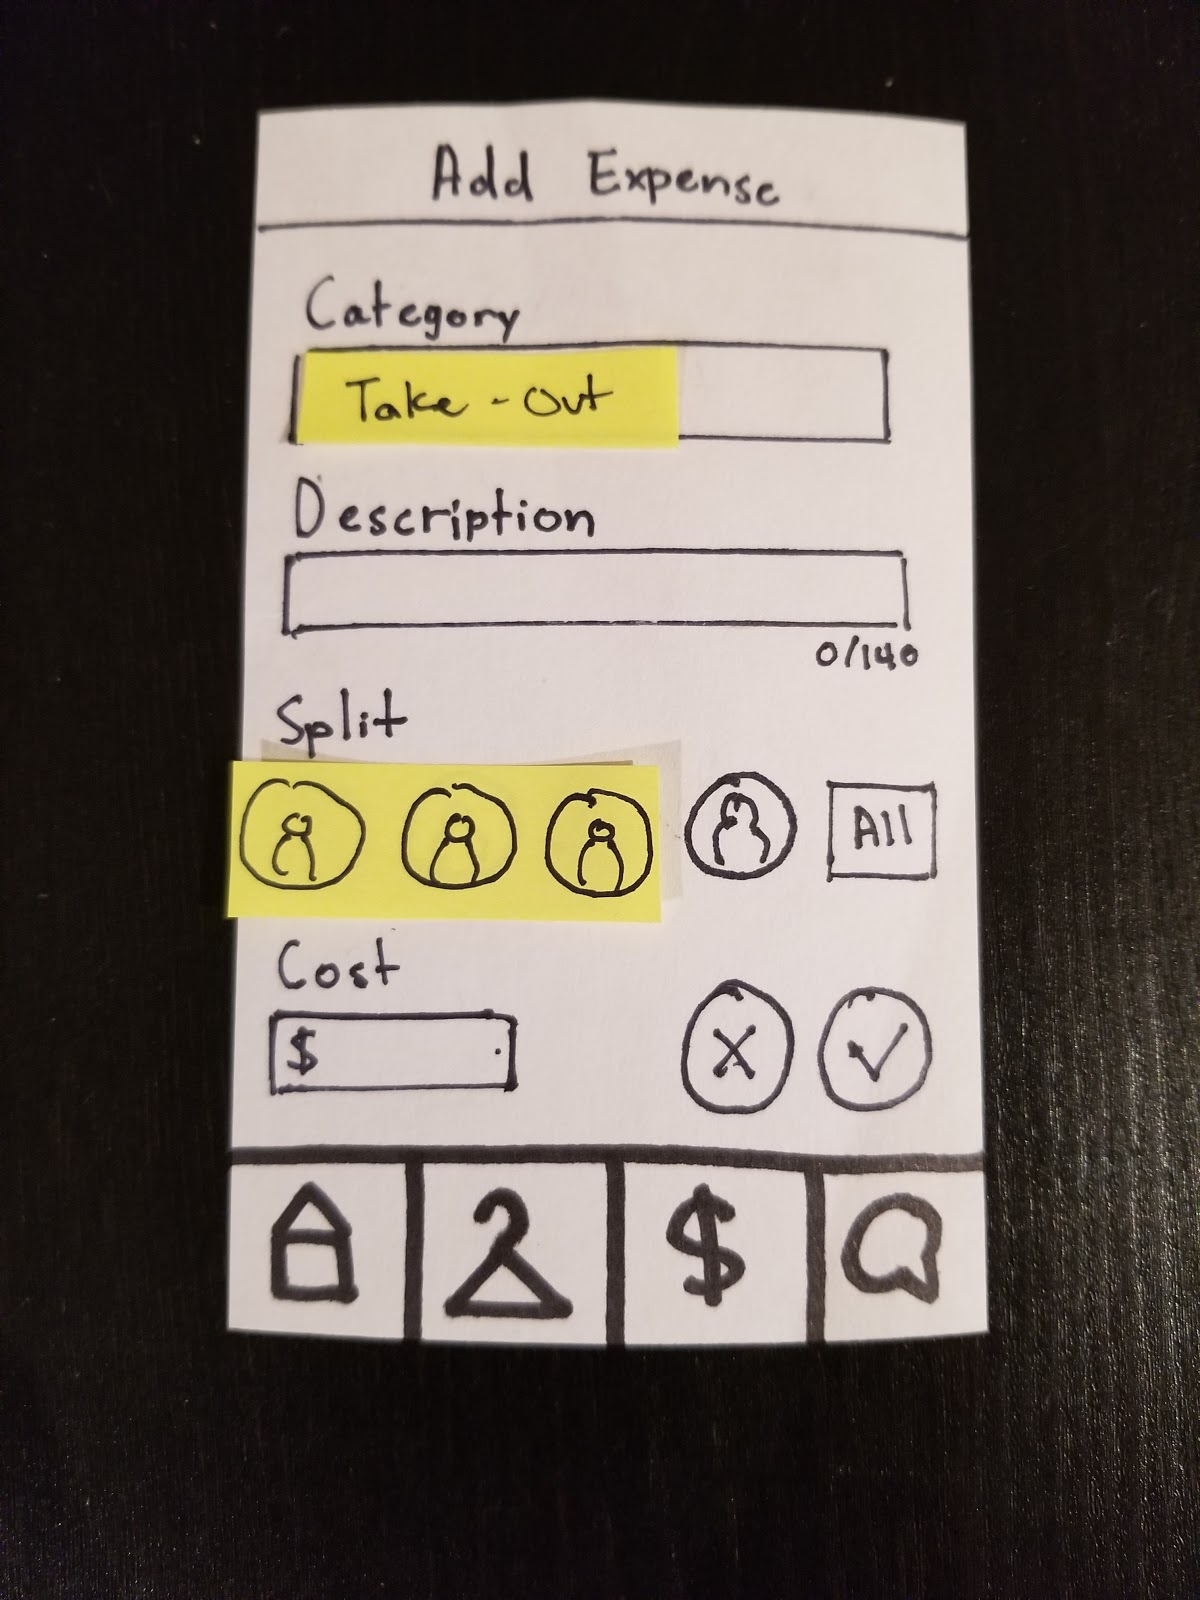 Add Expense
Category
Take-Out
Description
0/140
Split
All
Cost
$ .
$